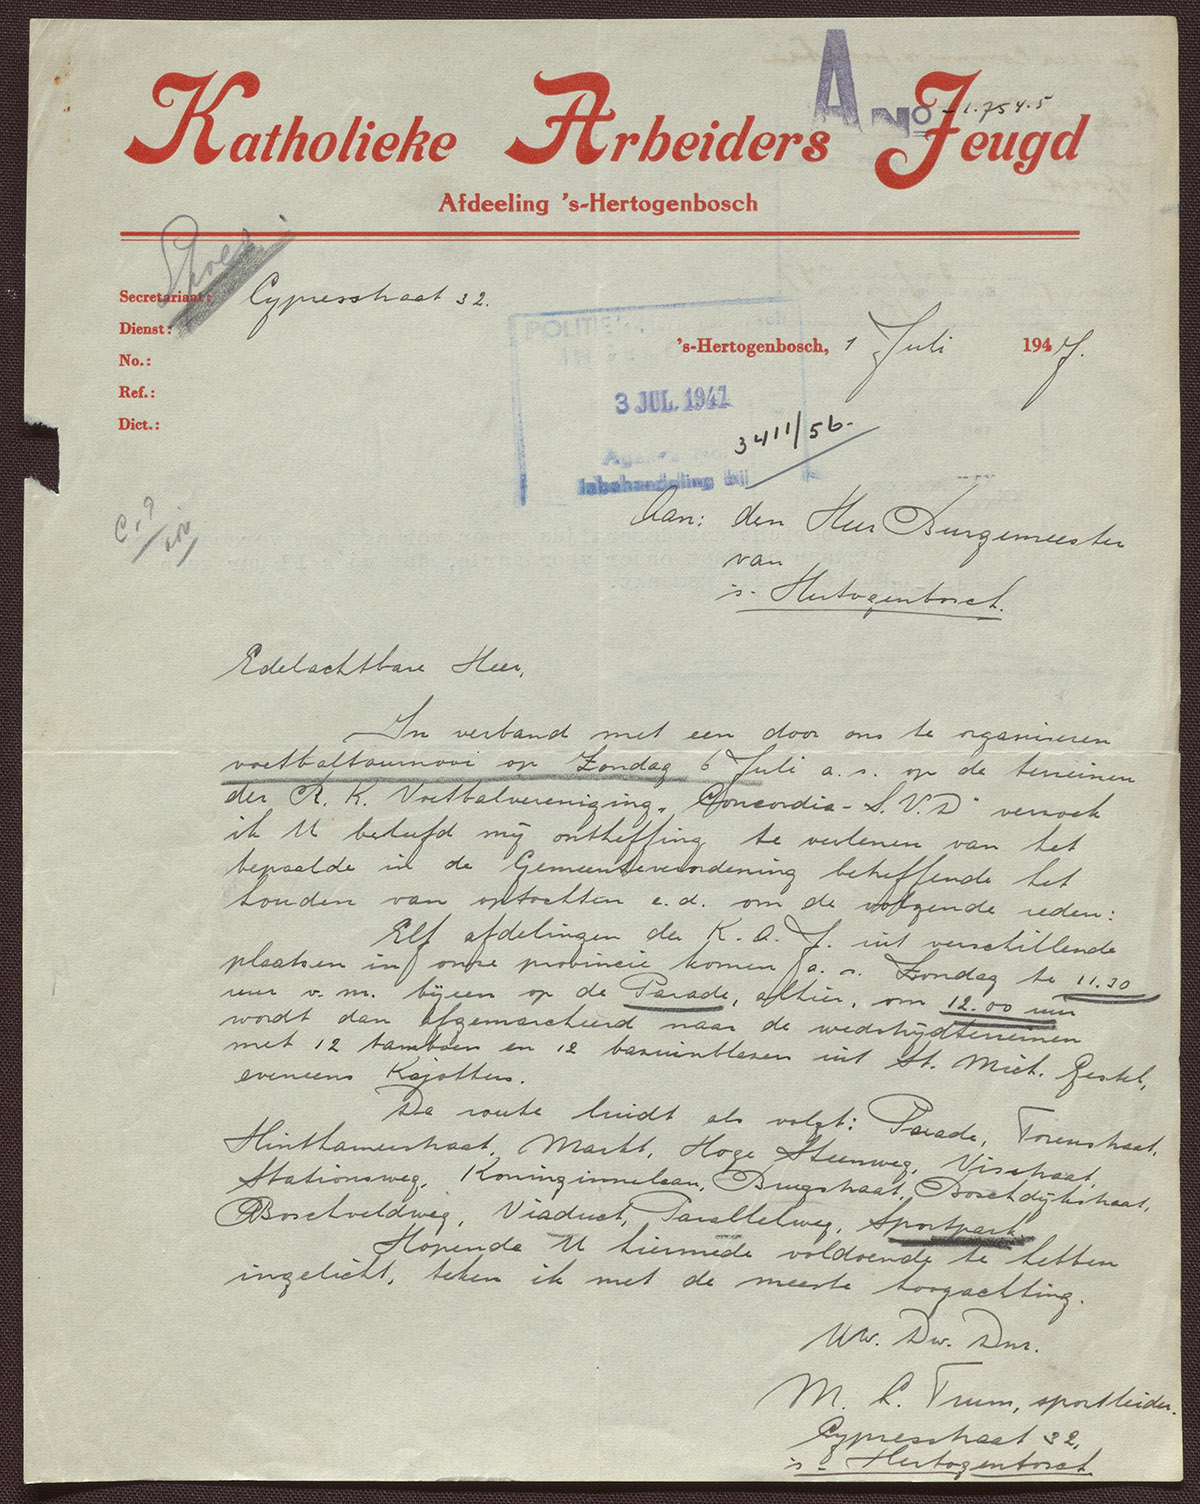 A No - 1.754.5
Katholieke Arbeiders Jeugd
Afdeeling 's-Hertogenbosch
Spoed
Secretariaat: Cypresstraat 32.
Dienst:
No.:
Ref.:
Dict.:
POLITIE
's-Hertogenbosch, 1 Juli 1947.
3 JUL. 1947
3411/56.
Agenda No.
Inbehandeling bij
Aan: den Heer Burgemeester
van
's-Hertogenbosch.
Edelachtbare Heer,
In verband met een door ons te organiseren
voetbaltournooi op Zondag 6 Juli a.s. op de terreinen
der R. K. Voetbalvereniging "Concordia-S.V.D." verzoek
ik U beleefd mij ontheffing te verlenen van het
bepaalde in de Gemeenteverordening betreffende het
houden van optochten e.d. om de volgende reden:
Elf afdelingen der K.A.J. uit verschillende
plaatsen in onze provincie komen a.s. Zondag te 11.30
uur v.m. bijeen op de Parade, alhier, om 12.00 uur
wordt dan afgemarcheerd naar de wedstrijdterreinen
met 12 tamboers en 12 bazuinblazers uit St. Mich. Gestel,
eveneens Kajotters.
De route luidt als volgt: Parade, Torenstraat,
Hinthamerstraat, Markt, Hoge Steenweg, Visstraat,
Stationsweg, Koninginnelaan, Brugstraat, Boschdijkstraat,
Boschveldweg, Viaduct, Parallelweg, Sportpark.
Hopende U hiermede voldoende te hebben
ingelicht, teken ik met de meeste hoogachting.
Uw. Dw. Dnr.
M. C. Trum, sportleider.
Cypresstraat 32,
's-Hertogenbosch